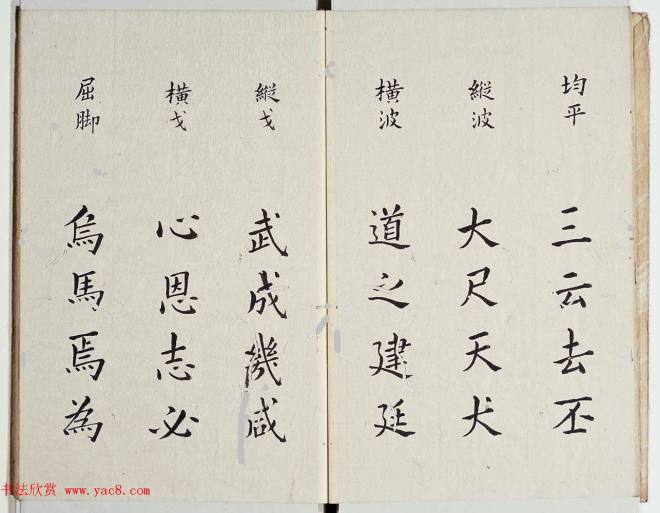 均平
三云去丕
縱波
大尺天犬
橫波
道之建延
縱戈
武成幾咸
橫戈
心恩志必
屈脚
烏馬焉為
书法欣赏 www.yac8.com